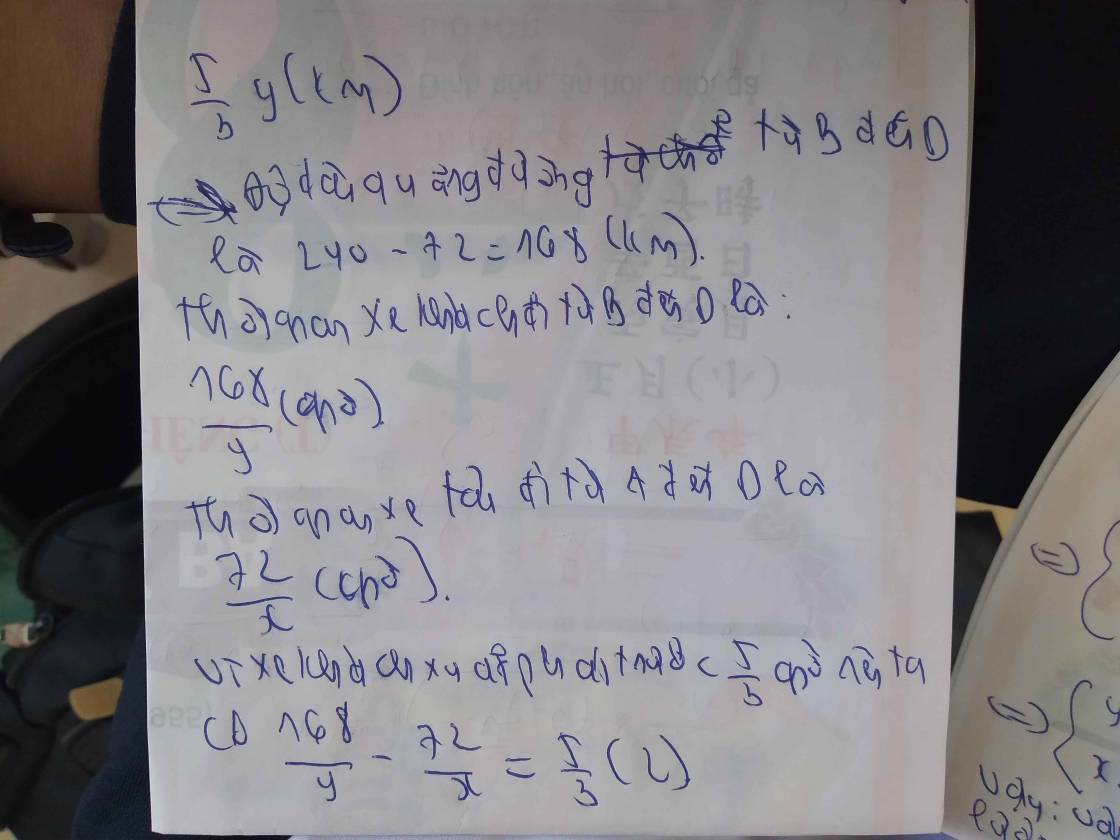 5/3 y (km)
Độ dài quãng đường từ B đến D
là 240 - 72 = 168 (km).
Thời gian xe khách đi từ B đến D là:
168/y (giờ)
Thời gian xe tải đi từ A đến D là
72/x (giờ).
Vì xe khách xuất phát trước 5/3 giờ nên ta
có 168/y - 72/x = 5/3 (2)
=> {
=> { y
x
Vậy: vậ
là